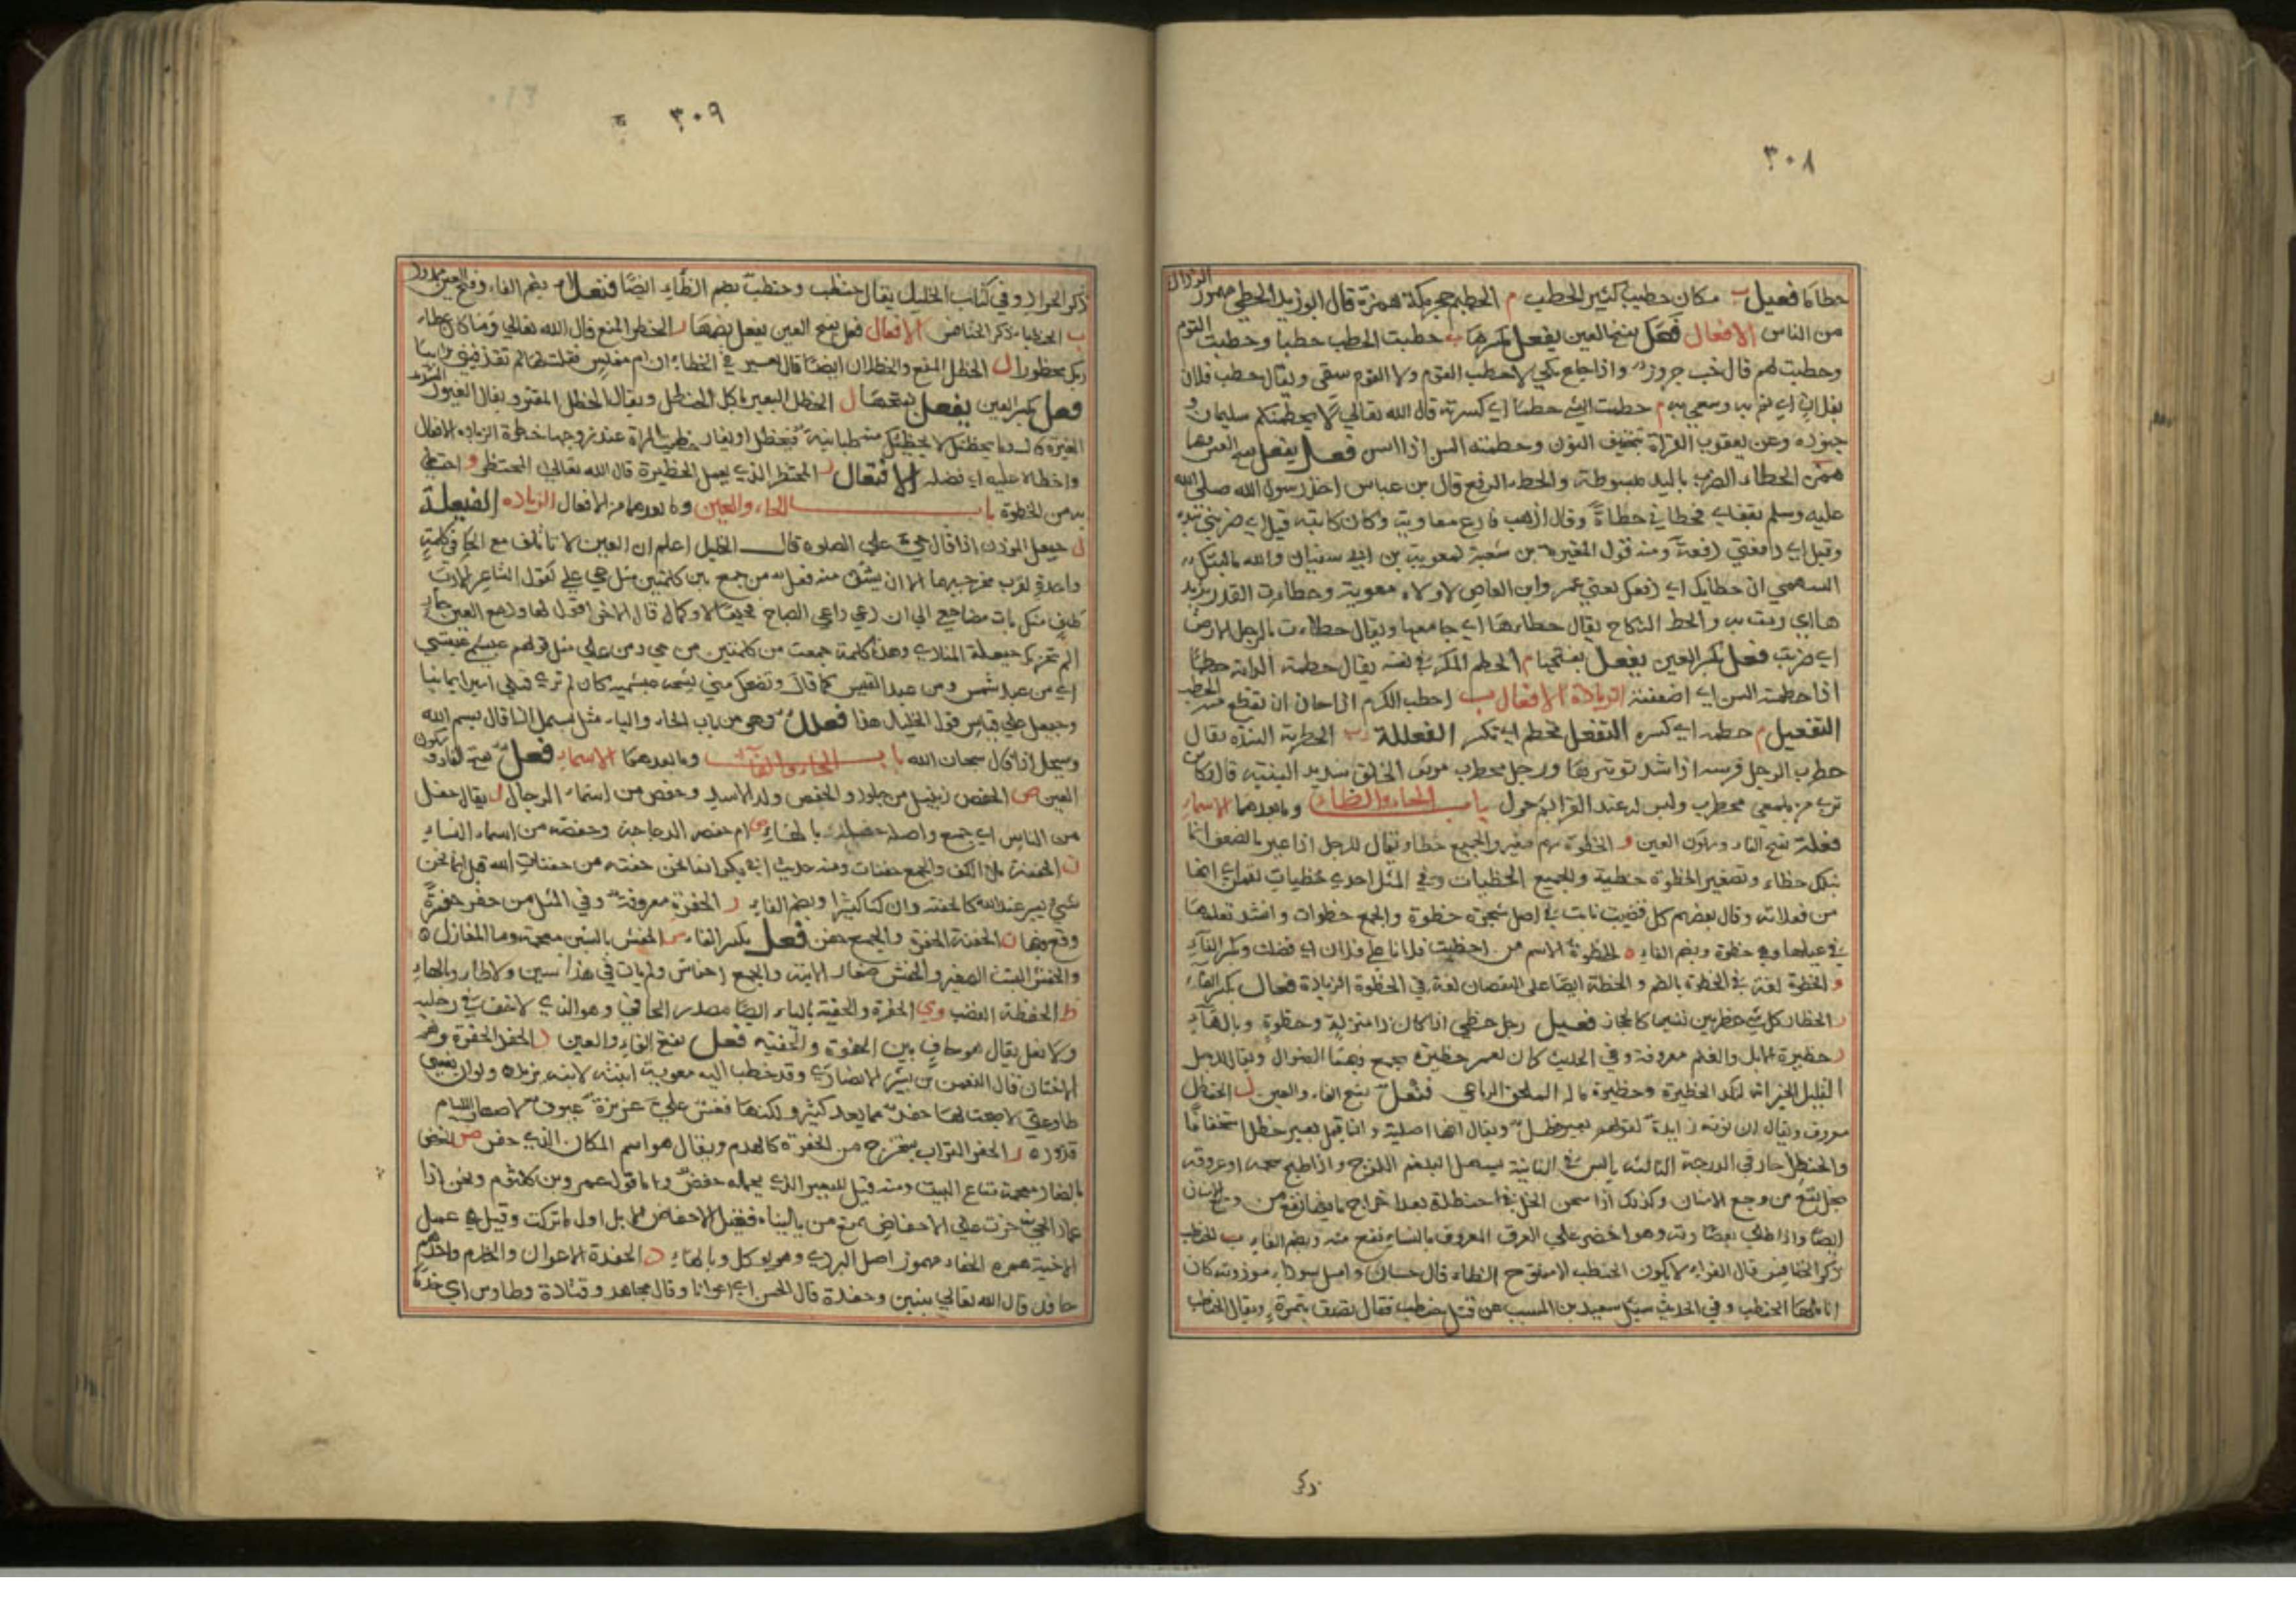 ٣٠٨
حطاما فعيل ب مكان حطيب كثير الحطب م الحطيم حجر مكة همزة قال ابوزيد الحطي مهموز الرذال
من الناس الافعال فعَل بفتح العين يفعل بكسرها ب حطبت الحطب حطبا وحطبت القوم
وحطبت لهم قال خب جروز واذا جاع بكي لا حطب القوم ولا القوم سقى ويقال حطب فلان
بفلان اي نم به وسعى به م حطمت الشي حطما اي كسرته قال الله تعالى لا يحطمنكم سليمان و
جنوده وعن يعقوب القراة بتخفيف النون وحطمته السن اذا اسن فعل يفعل بفتح العين فيهما
همزة الحطاء الضرب باليد مبسوطة والحطء الدفع قال بن عباس اخذ رسول الله صلى الله
عليه وسلم بقفاي فحطاني حطاةً وقال اذهب فادع معاوية وكان كاتبه قيل اي ضربني بيده
وقيل اي دفعني دفعة ومنه قول المغيرة بن شعبة لمعوية بن ابي سفيان والله ما لبثك
السهمي ان حطا بك اي دفعك يعني عمرو ابن العاص لاولاه معوية وحطات القدر بزبد
ها اي رمت به والحطء النكاح يقال حطاءها اي جامعها ويقال حطاءت بالرجل الارض
اي ضربت فعل بكسر العين يفعل بفتحها م الحطم المتكسر في نفسه يقال حطمت الدابة حطما
اذا حطمته السن اي اضعفته الزيادة الافعال ب احطب الكرم اذا حان ان يقطع منه الحطب
التفعيل م حطمه اي كسره التفعل تحطم اي تكسر الفعللة ب الحطربة الشدة يقال
حطرب الرجل قوسه اذا شد توتيرها ورجل محطرب موثق الخلق شديد البنية قال وكاين
ترى من يلمعي محطرب وليس له عند العزايم حول باب الحاء والظاء وما بعدهما الاسماء
فعلة بفتح الفاء وسكون العين و الحظوة سهم صغير والجميع حظاء ويقال للرجل اذا عير بالضعف انما
نبلك حظاء وتصغير الحظوة حظية والجميع الحظيات وفي المثل احدى حظيات لقمان اي انها
من فعلاته وقال بعضهم كل قضيب نابت في اصل شجرة حظوة والجمع حظوات وانشد تعلمها
في غيلها وهي حظوة وبضم الفاء ه الحظوة الاسم من احظيت فلانا على فلان اي فضلت وبكسر الفاء
و الحظوة لغة في الحظوة بالضم و الحظة ايضا على النقصان لغة في الحظوة الزيادة فعال بكسر الفاء
ر الحظار كل شي حظر بين شيئين كالحجاز فعيل رجل حظي اذا كان ذا منزلة وحظوة وبالهاء
ر حظيرة الابل والغنم معروفة وفي الحديث كان لعمر حظيرة يجمع فيها الضوال ويقال للرجل
القليل الخير انه لنكد الحظيرة وحظيرة ماله الملحق الرباعي فنعل بفتح الفاء والعين ل الحنظل
معروف ويقال ان نونه زايدة لقولهم بعير حظل ويقال انها اصلية وانما قيل بعير حظل استخفافا
والحنظل حار في الدرجة الثالثة يابس في الثانية يسهل البلغم اللزج واذا طبخ شحمه او عروقه
بخل نفع من وجع الاسنان وكذلك اذا سخن الخل في حنظلة بعد اخراج ما فيها نفع من وجع الاسنان
ايضا واذا طلي بعصارته وهو اخضر على العرق المعروف بالنساء نفع منه وبضم الفاء ب الحنظب
ذكر الخنافس قال الفراء لا يكون الحنظب الا مفتوح الظاء قال حسان وامك سوداء مودونة كان
اناملها الحنظب وفي الحديث سئل سعيد بن المسيب عن قتل حنظب فقال تصدق بتمرة ويقال الحنظب
ذكر
٣٠٩
ذكر الجراد وفي كتاب الخليل يقال حنظب وحنظبٌ بضم الظاء ايضا فنعلاء بضم الفاء وفتح العين ممدود
ب الحنظباء ذكر الخنافس الافعال فعل بفتح العين يفعل بضمها ر الحظر المنع قال الله تعالى وما كان عطاء
ربك محظورا ل الحظل المنع والحظلان ايضا قال
فعل بكسر العين يفعل بفتحها ل الحظل البعير ياكل الحنظل ويقال الحظل المقتر ويقال الغيور الشديد
واحظاه عليه اي فضله الافتعال ر المحتظر الذي يعمل الحظيرة قال الله تعالى المحتظر و احتظى
به من الحظوة باب الحاء والعين وما بعدهما من الافعال الزيادة الفيعلة
ل حيعل الموذن اذا قال حي على الصلوه قال الخليل اعلم ان العين لا تاتلف مع الحاء في كلمة
واحدة لقرب مخرجيهما الا ان يشتق منه فعل يه من جمع بين كلمتين مثل حي على كقول الشاعر
الم تحزنك حيعلة المنادي وهذه كلمة جمعت من كلمتين من حي ومن على مثل قولهم عبشم عبشمي
اي من عبد شمس ومن عبد القيس كما قال وتضحك مني شيخة عبشمية كان لم ترى قبلي اسيرا يمانيا
وحيعل على قياس قول الخليل هذا فعلل وهي من باب الحاء والياء مثل بسمل اذا قال بسم الله
وسبحل اذا قال سبحان الله باب الحاء والفاء وما بعدهما الاسماء فعل بفتح الفاء وسكون
العين ص الحفص زبيل من جلود والحفص ولد الاسد وحفص من اسماء الرجال ل يقال حفل
من الناس اي جمع واصله مصدر بالهاء ص ام حفصة الدجاجة وحفصة من اسماء النساء
ن الحفنة ملا الكف والجمع حفنات ومنه حديث ابي بكر انما نحن حفنة من حفنات الله قيل انما نحن
شي يسير عند الله كالحفنة وان كنا كثيرا وبضم الفاء ر الحفرة معروفة وفي المثل من حفر حفرةً
وقع فيها ن الحفنة الحفرة والجميع حفن فعل بكسر الفاء ش الحفش بالشين معجمة وعا المغازل ه
والحفش البيت الصغير والحفش صغار الانية والجمع احفاش ولم يات في هذا سين ولا طاء وبالهاء
ظ الحفظة الغضب وي الحفوة والحفية بالياء ايضا مصدر الحافي وهو الذي لا خف في رجليه
ولا نعل يقال هو حاف بين الحفوة والحفية فعل بفتح الفاء والعين د الحفد الحفدة وهم
الاختان قال النعمن بن بشير الانصاري وقد خطب اليه معوية ابنته لابنه يزيد ولو ان نفسي
طاوعتني لاصبحت لها حفد مما يعد كثير ولكنها نفس علي عزيزة عيوف لاصهار اللئام
قذوره ر الحفر التراب يستخرج من الحفرة كالهدم ويقال هو اسم المكان الذي حفر ض الحفض
بالضاد معجمة متاع البيت ومنه قيل للبعير الذي يحمله حفض واما قول عمرو بن كلثوم ونحن اذا
عماد الحي خرت على الاحفاض نمنع من يلينا فقيل الاحفاض الابل اول ما تركب وقيل هي عمد
الاخبية همزه الحفاء مهموز اصل البردي وهو يوكل وبالهاء د الحفدة الاعوان والخدم واحدهم
حافد قال الله تعالى بنين وحفدة قال الحسن اي اعوانا وقال مجاهد وقتادة وطاوس اي خدما